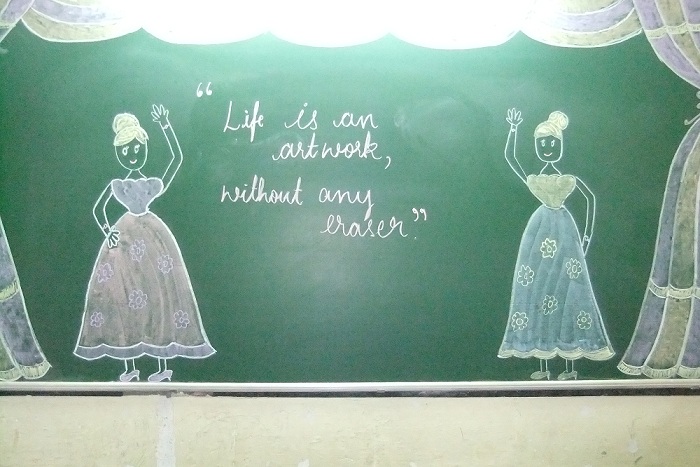 “ Life is an
artwork,
without any
eraser.”